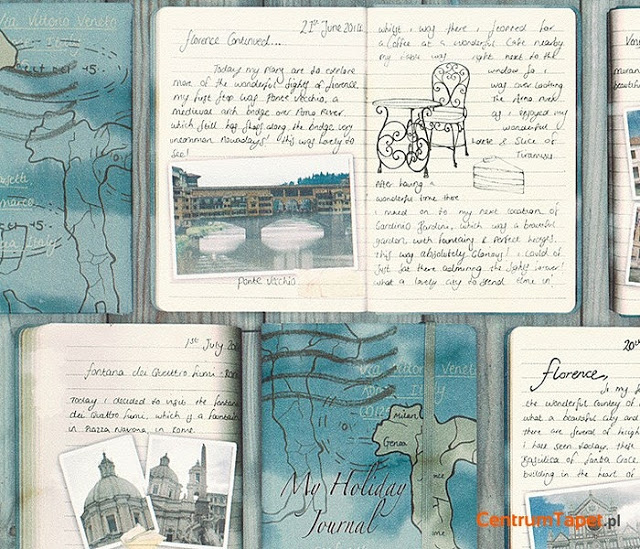 Via Vittorio Veneto
Italy
45
marco
Italy
21st June 2014
Florence Continued...
Today my plans are to explore
more of the wonderful sights of florence
my first stop was Ponte Vecchio, a
medieval arch bridge over Arno River
which still has shops along the bridge very
uncommon nowadays! this was lovely to
see!
Ponte Vecchio
whilst i was there i stopped for
a coffee at a wonderful Cafe nearby
my table was right next to the
window so i
was over looking
the Arno River
as i enjoyed my
wonderful
Latte & Slice of
Tiramisu
After having a
wonderful time there
i moved on to my next location of
Giardino Bardini, which was a beautiful
garden with fountains & perfect hedges.
this was absolutely Glorious! i could of
just sat there admiring the sights forever!
what a lovely city to spend time in!
1st July
fontana dei Quattro fiumi - Rome
Today i decided to visit the fontana
dei Quattro fiumi, which is a fountain
in Piazza Navona in Rome.
Via Vittorio Veneto
Italy
Milan
Genoa
My Holiday
Journal
20th
florence,
In my f
the wonderful country of
what a beautiful city and
there are several of
i have seen today, these
Basilica of Santa Croce
building in the heart of
CentrumTapet.pl